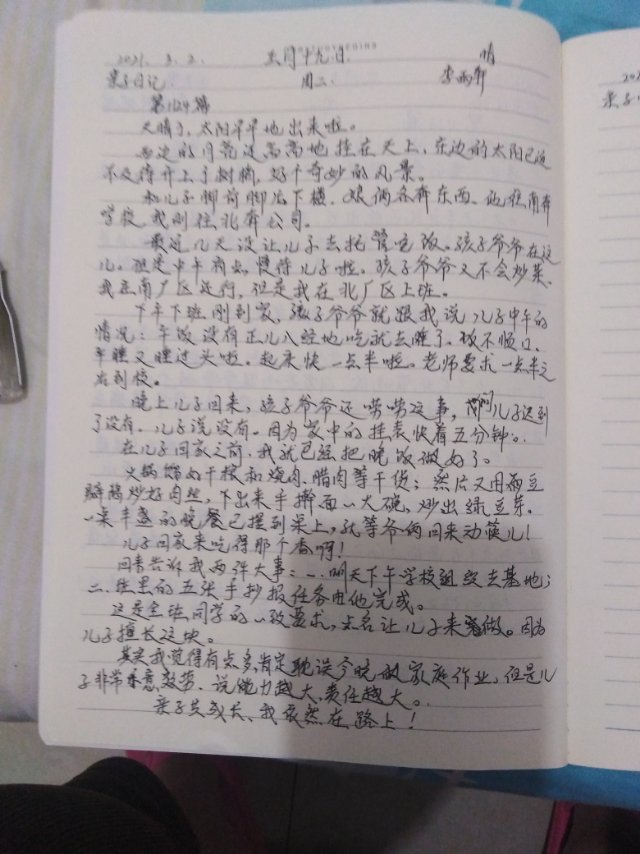 2021. 3. 2. 正月十九日. 晴
亲子日记 周二. 李雨
第1124篇
天晴了,太阳早早地出来啦。
西边的月亮还高高地挂在天上,东边的太阳已迫
不及待升上了树梢,好个奇妙的风景。
和儿子脚前脚后下楼,娘俩各奔东西。他往南奔
学校,我则往北奔公司。
最近几天没让儿子去托管吃饭。孩子爷爷在这
儿。但是中午有点慢待儿子啦。孩子爷爷又不会炒菜。
我在南厂区还行,但是我在北厂区上班。
下午下班刚到家,孩子爷爷就跟我说儿子中午的
情况:午饭没有正儿八经地吃就去睡了。饭不顺口、
午睡又睡过头啦。起来快一点半啦。老师要求一点半之
前到校。
晚上儿子回来,孩子爷爷还唠唠这事,问问儿子迟到
了没有。儿子说没有。因为家中的挂表快着五分钟。
在儿子回家之前,我就已经把晚饭做好了。
火锅 的干核和烧肉、腊肉等干货;然后又用
炒好肉丝,下出来手擀面一大碗,炒出绿豆芽。
一桌丰盛的晚餐已摆到桌上,就等爷俩回来动筷儿!
儿子回家来吃得那个香啊!
回来告诉我两件大事:一.明天下午学校组织去基地;
二.班里的五张手抄报任务由他完成。
这是全班同学的一致要求,点名让儿子来做。因为
儿子擅长这块。
其实我觉得有点多,肯定耽误今晚的家庭作业,但是儿
子非常乐意效劳。说能力越大、责任越大。
亲子共成长、我依然在路上!